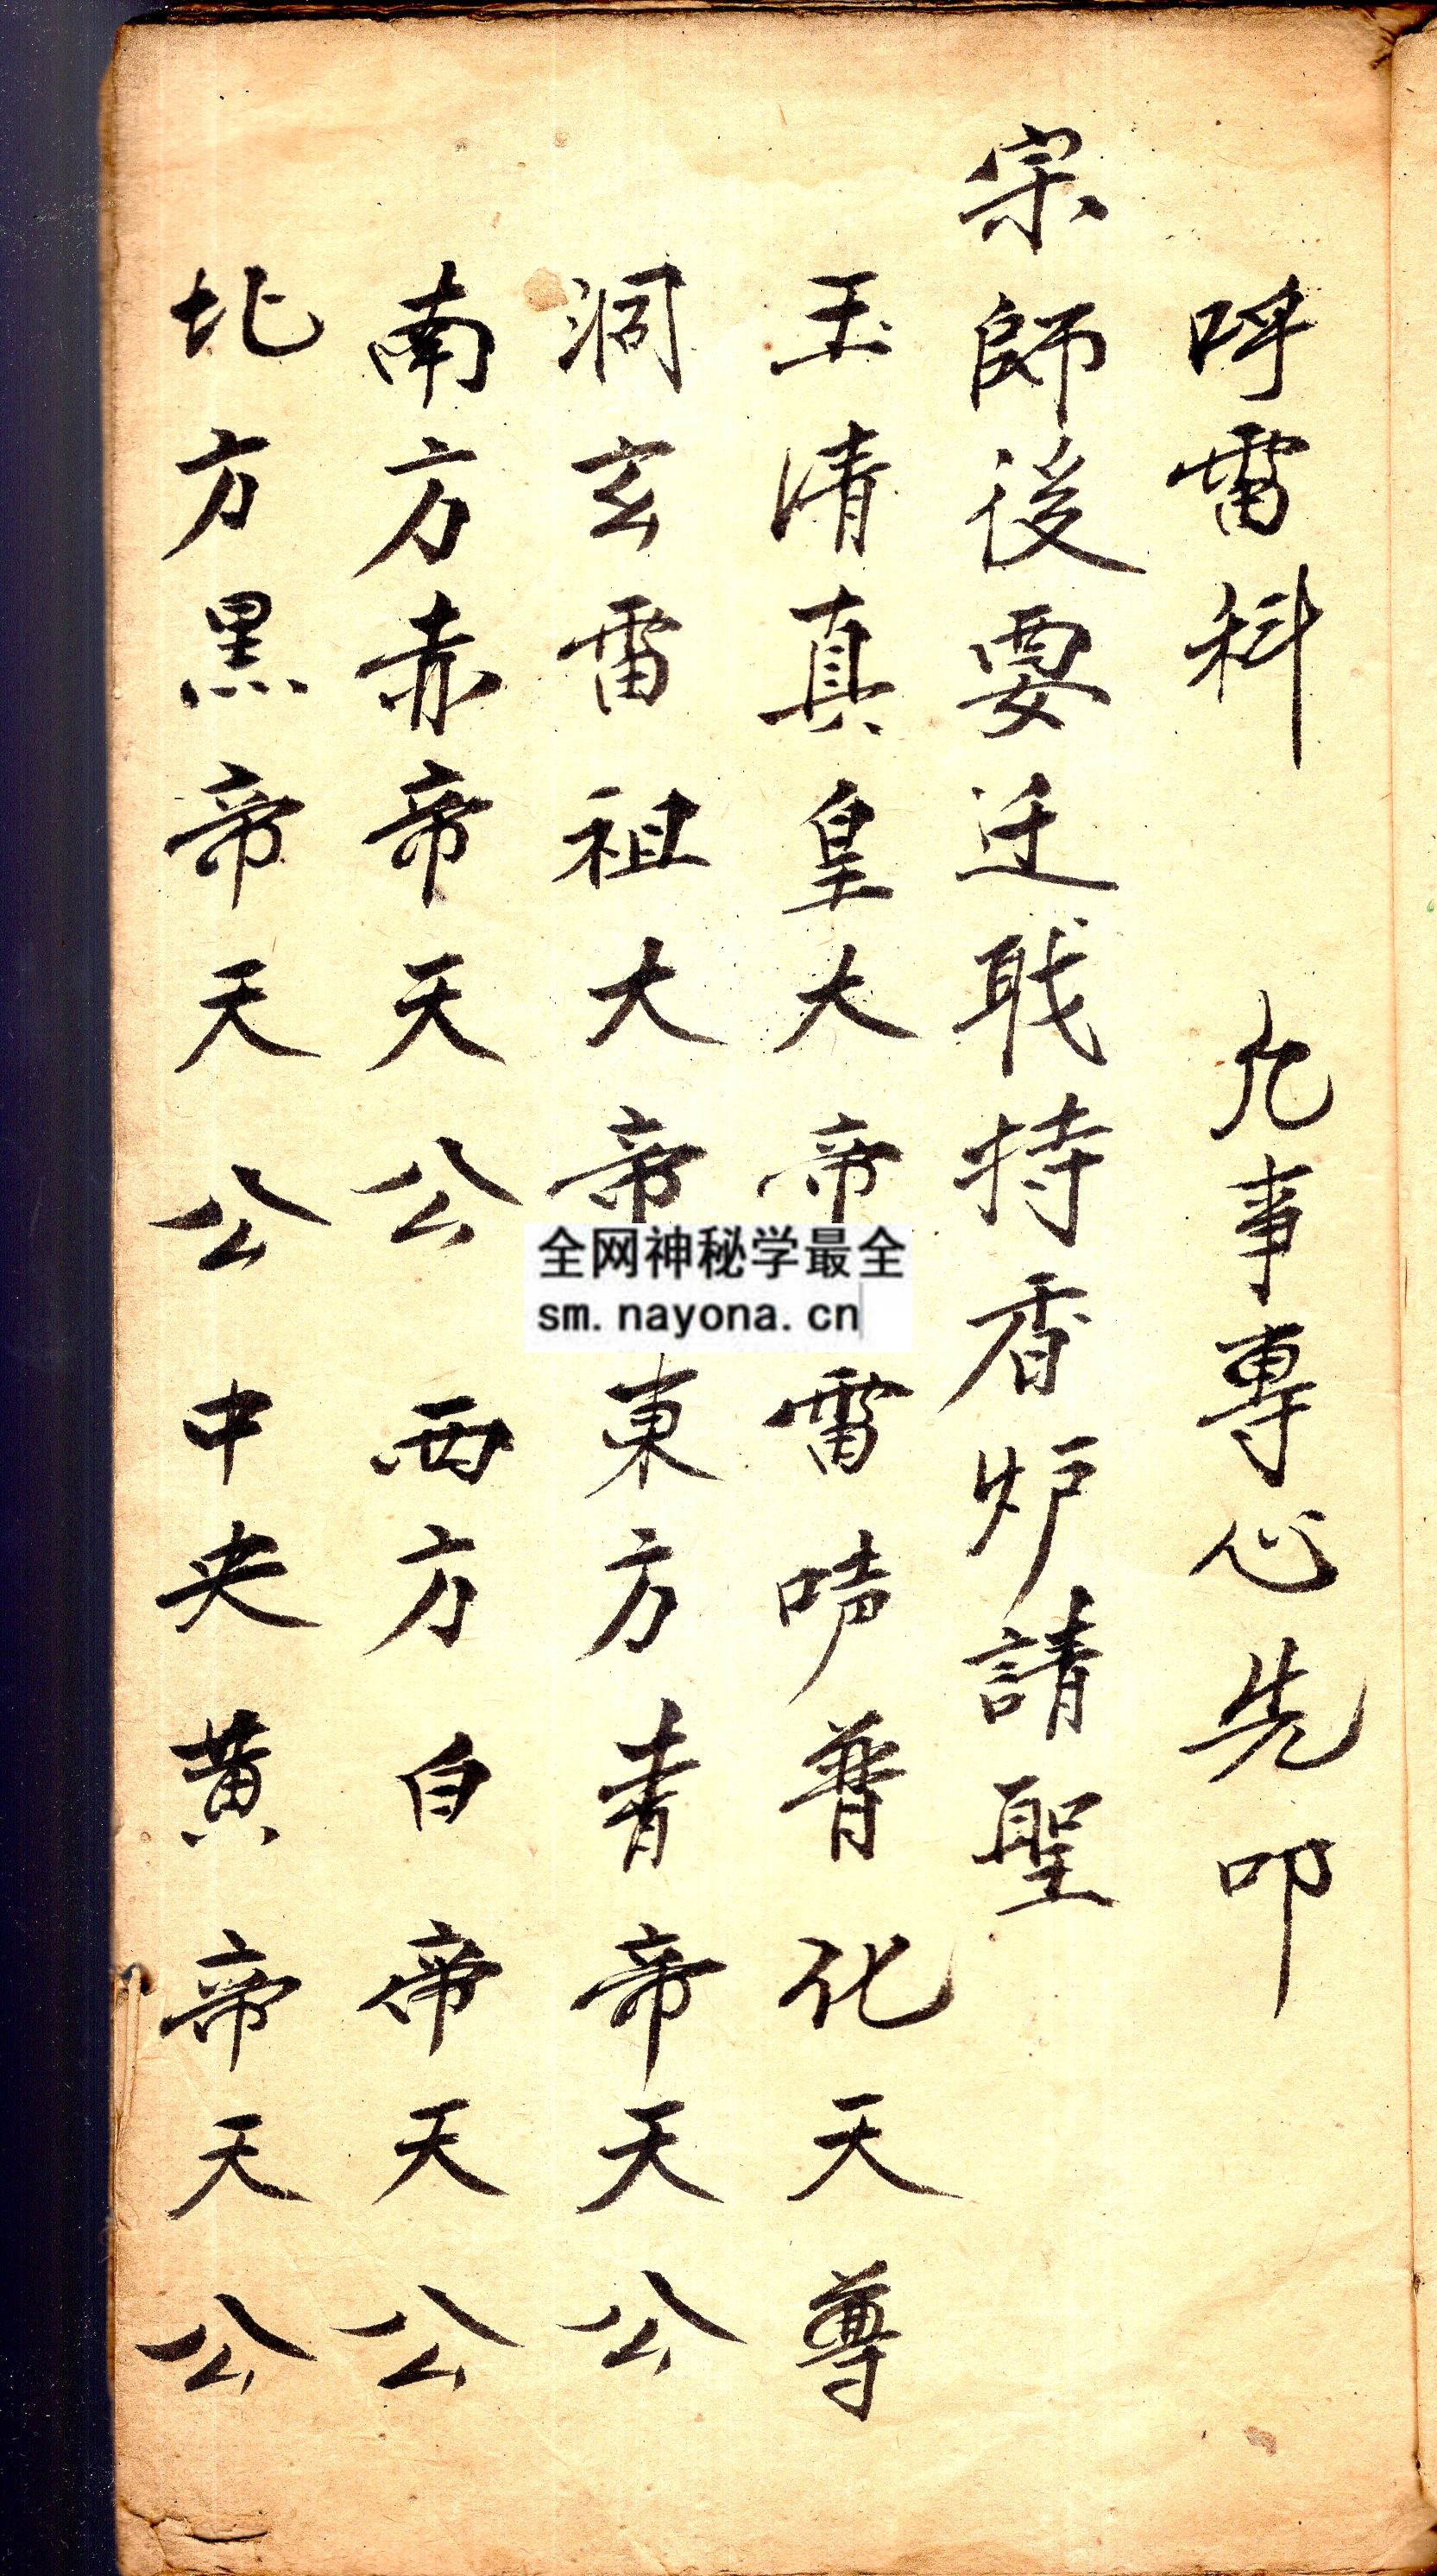 呼雷科　凢事專心先叩
宗師後要迁戝持香炉請聖
玉清真皇大帝　雷唪普化天尊
洞玄雷祖大帝　東方青帝天公
南方赤帝天公　西方白帝天公
北方黑帝天公　中央黄帝天公
全网神秘学最全
sm.nayona.cn